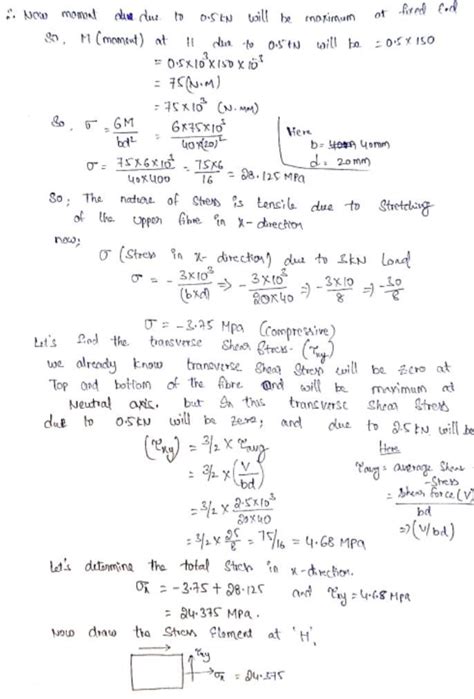 ∴ Now moment due due to 0.5 kN will be maximum at fixed End
So, M (moment) at H due to 0.5 kN will be = 0.5 × 150
= 0.5 × 10³ × 150 × 10⁻³
= 75 (N.M)
= 75 × 10³ (N.MM)
So, σ = 6M/bd² = 6×75×10³/40×(20)²
Here
b = 40mm
d = 20mm
σ = 75×6×10³/40×400 = 75×6/16 = 28.125 MPa
So; The nature of Stress is tensile due to Stretching
of the upper fibre in x-direction
now;
σ (Stress in x-direction) due to 3kN Load
σ = - 3×10³/(b×d) => - 3×10³/20×40 => - 3×10/8 => - 30/8
σ = -3.75 Mpa (compressive)
Let's find the transverse Shear Stress - (τxy)
we already know transverse Shear Stress will be zero at
Top and bottom of the fibre and will be maximum at
Neutral axis. but In this transverse Shear Stress
due to 0.5kN will be zero; and due to 2.5kN will be
(τxy) = 3/2 × τavg
Here
τavg = average Shear
-Stress
= 3/2 × (V/bd)
= Shear force (V)/bd
= 3/2 × 2.5×10³/20×40
=> (V/bd)
= 3/2 × 25/8 = 75/16 = 4.68 MPa
Let's determine the total Stress in x-direction.
σx = -3.75 + 28.125 and τxy = 4.68 MPa
= 24.375 MPa.
Now draw the Stress Element at 'H',
τxy
σx = 24.375